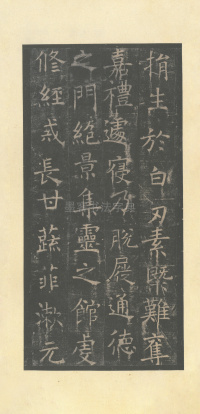 捐生於白刃素槩難奪
嘉禮遽寢乃脫屣通德
之門絕景集靈之館虔
修經戒長甘蔬菲漱元